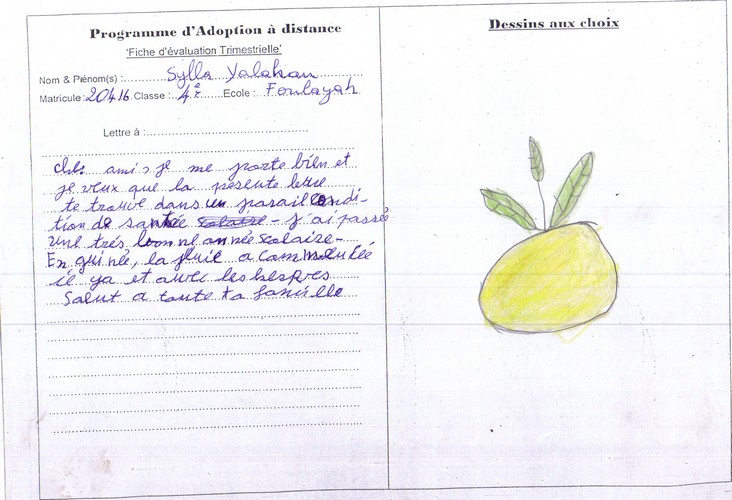 Programme d'Adoption à distance
'Fiche d'évaluation Trimestrielle'
Nom & Prénom(s) : Sylla Yalakan
Matricule : 20416 Classe : 4è Ecole : Foulayah
Lettre à :
cher ami, je me porte bien et
je veux que la présente lettre
te trouve dans un parail condi-
tion de santée scolaire - j'ai passée
une très bonne année scolaire-
En guinée, la pluie a commencée
il ya et avec les
Salut a toute ta famille
Dessins aux choix